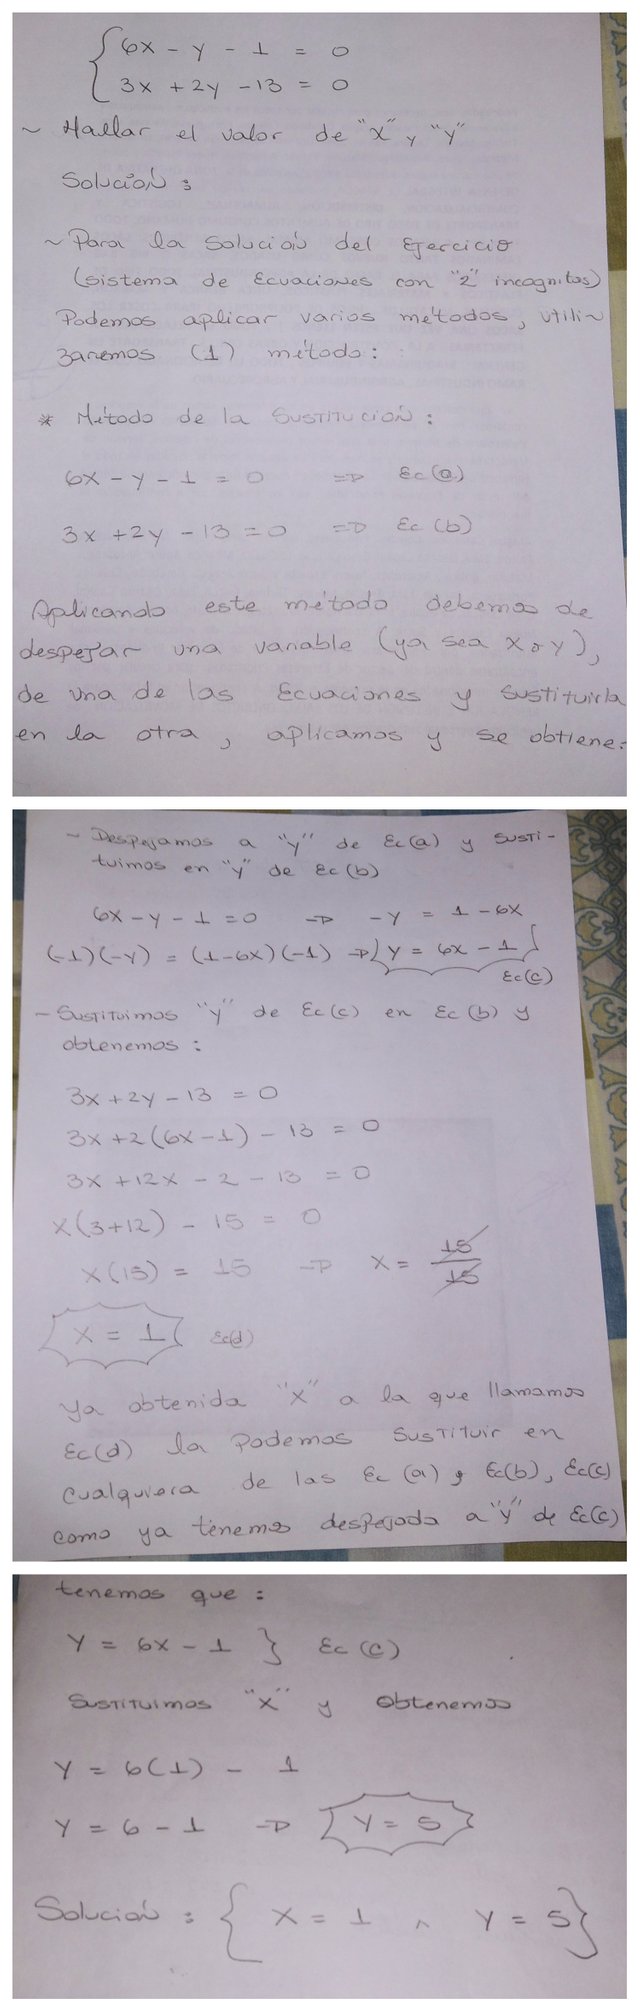 6x - y - 1 = 0
3x + 2y - 13 = 0
~ Hallar el valor de "x" y "y"
Solución :
~ Para la solución del Ejercicio
(sistema de Ecuaciones con "2" incognitas)
Podemos aplicar varios métodos, utili~
zaremos (1) método :
* Método de la SUSTITUCIÓN :
6x - y - 1 = 0 => Ec(a)
3x + 2y - 13 = 0 => Ec (b)
Aplicando este método debemos de
despejar una variable (ya sea x o y),
de una de las Ecuaciones y sustituirla
en la otra, aplicamos y se obtiene:
- Despejamos a "y" de Ec(a) y susti-
tuimos en "y" de Ec(b)
6x - y - 1 = 0 => -y = 1 - 6x
(-1)(-y) = (1-6x)(-1) => y = 6x - 1
Ec(c)
- Sustituimos "y" de Ec(c) en Ec(b) y
obtenemos :
3x + 2y - 13 = 0
3x + 2(6x-1) - 13 = 0
3x + 12x - 2 - 13 = 0
x(3+12) - 15 = 0
x(15) = 15 => x = 15/15
x = 1 Ec(d)
Ya obtenida "x" a la que llamamos
Ec(d) la Podemos sustituir en
cualquiera de las Ec (a), Ec(b), Ec(c)
como ya tenemos despejada a "y" de Ec(c)
tenemos que :
y = 6x - 1 } Ec (c)
Sustituimos "x" y obtenemos
y = 6(1) - 1
y = 6 - 1 => y = 5
Solución : { x = 1 ^ y = 5}